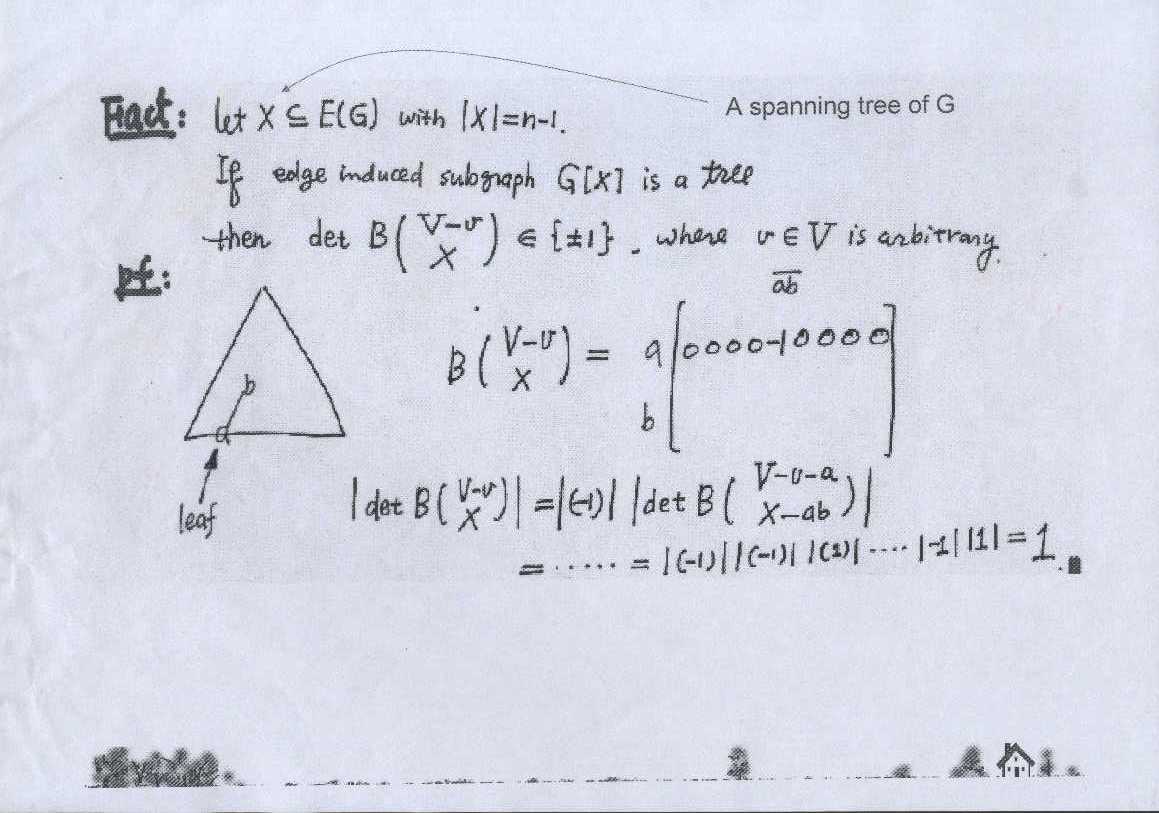 Fact: let X ⊆ E(G) with |X|=n-1.
A spanning tree of G
If edge induced subgraph G[X] is a tree
then det B(V-v / X) ∈ {±1}. where v ∈ V is arbitrary.
pf:
ab
B(V-v / X) = a [0 0 0 0 -1 0 0 0 0]
b
b
a
leaf
|det B(V-v / X)| = |(-1)| |det B(V-v-a / X-ab)|
= ..... = |(-1)| |(-1)| |(1)| .... |-1| |1| = 1.